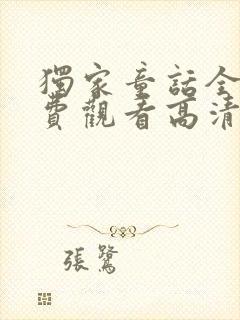 獨家童話全
費觀看高清
張鷺